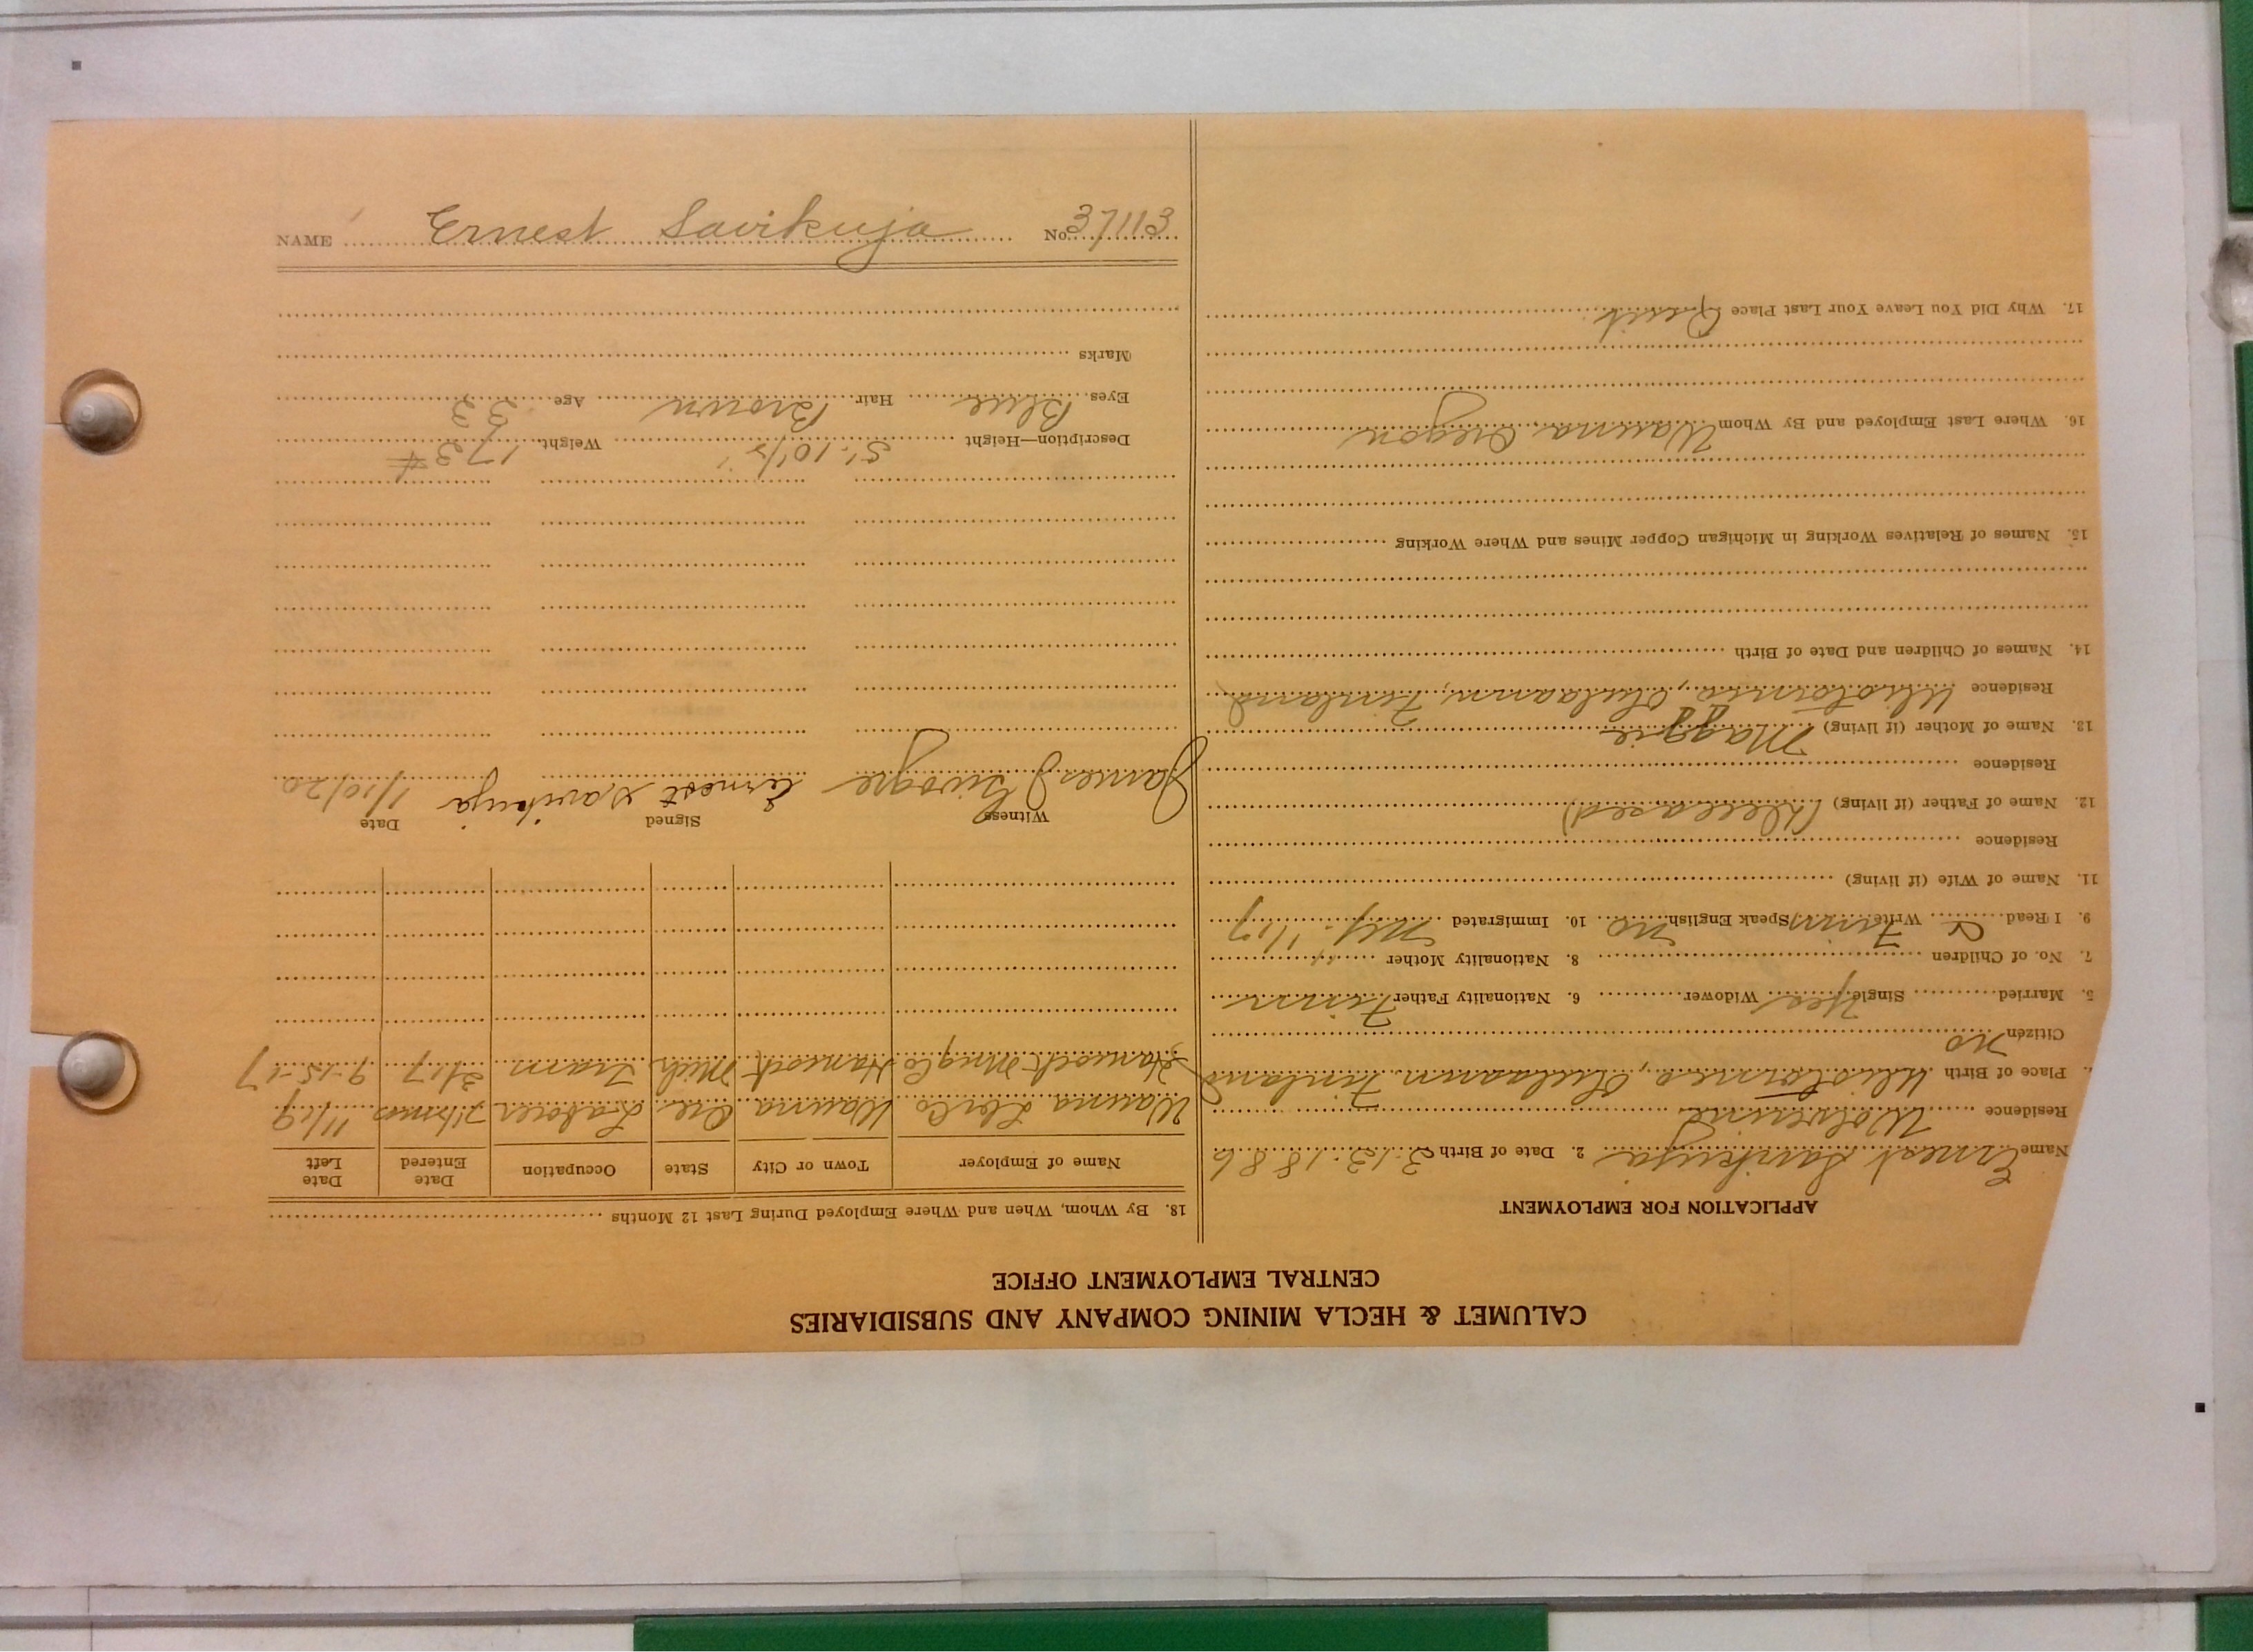 CALUMET & HECLA MINING COMPANY AND SUBSIDIARIES
CENTRAL EMPLOYMENT OFFICE
APPLICATION FOR EMPLOYMENT
Name Ernest Savikuja 2. Date of Birth 3-12-1886
Residence Wolverine
Place of Birth Ulitornio, Oulaann, Finland
Citizen no
5. Married Single Yes Widower 6. Nationality Father Finn
7. No. of Children 8. Nationality Mother "
9. I Read & Write Finn Speak English no 10. Immigrated 1/17
11. Name of Wife (if living)
Residence
12. Name of Father (if living) (Deceased)
Residence
13. Name of Mother (if living) Maggie
Residence Ulitornio, Oulaann, Finland
14. Names of Children and Date of Birth
15. Names of Relatives Working in Michigan Copper Mines and Where Working
16. Where Last Employed and By Whom Wauna, Oregon
17. Why Did You Leave Your Last Place Quit
18. By Whom, When and Where Employed During Last 12 Months
Name of Employer Town or City State Occupation Date Entered Date Left
Wauna Lbr Co Wauna Ore Laborer 11/19
Hancock Mng Co Hancock Mich Tram 2/17 9-15-17
Witness Signed Date
James J Ernest Savikuja 1/10/20
Description—Height 5'.10½" Weight 173 #
Eyes Blue Hair Brown Age 33
Marks
NAME Ernest Savikuja No. 37113